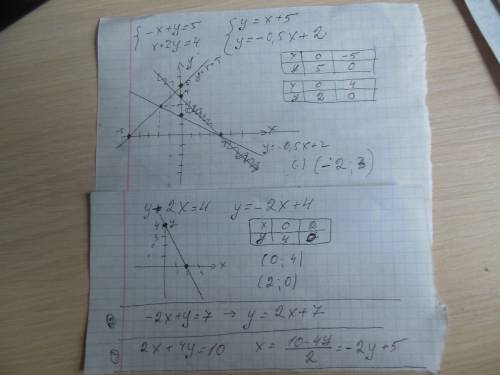 { -x+y=5 { y=x+5
x+2y=4 y=-0,5x+2
y
y=x+5
x 0 -5
y 5 0
x 0 4
y 2 0
x
y=-0,5x+2
(·) (-2;3)
y+2x=4 y=-2x+4
4 y
x 0 2
y 4 0
x
(0; 4)
(2; 0)
-2x+y=7 → y=2x+7
2x+4y=10 x = \frac{10-4y}{2} = -2y+5